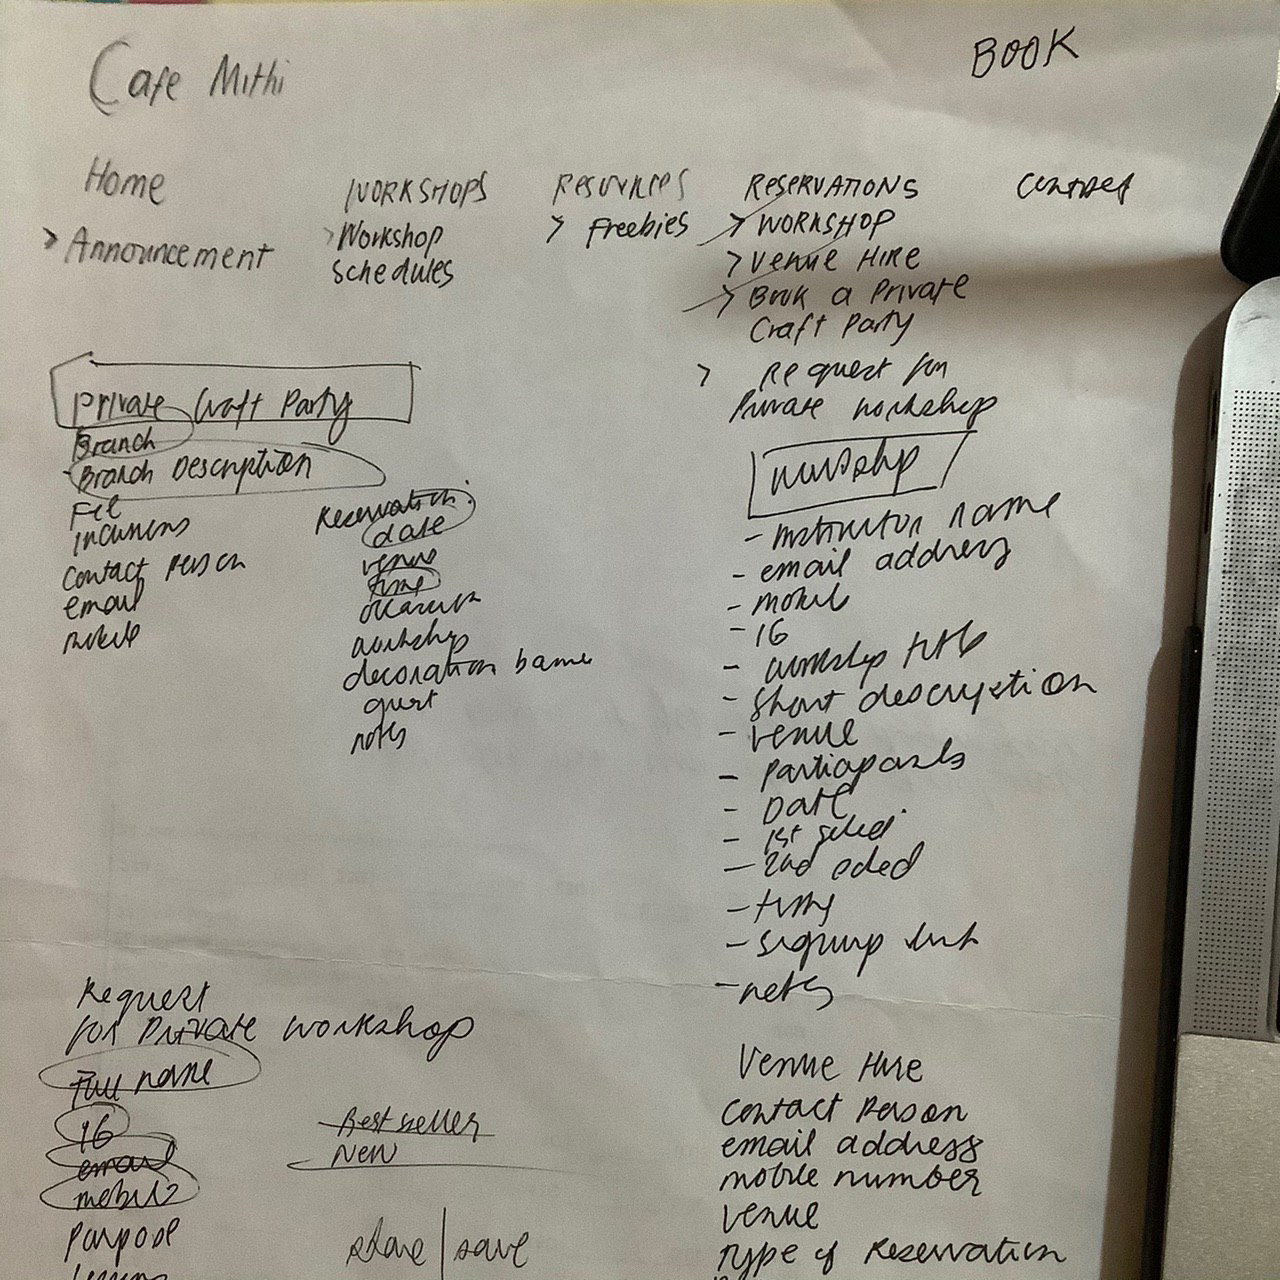 Cafe Mithi
BOOK
Home
> Announcement
WORKSHOPS
> Workshop
schedules
RESOURCES
> Freebies
RESERVATIONS
> WORKSHOP
> Venue Hire
> Book a Private
Craft Party
> Request for
Private workshop
Contact
Private Craft Party
Branch
Branch Description
Fee
Inclusions
Contact Person
email
mobile
Reservation:
date
venue
time
occasion
workshop
decoration
guest
notes
workshop
- instructor name
- email address
- mobile
- IG
- workshop title
- short description
- venue
- Participants
- Date
- 1st sched
- 2nd sched
- time
- signup link
- notes
Request
for Private Workshop
Full name
IG
email
mobile
Purpose
Best seller
New
share | save
Venue Hire
Contact Person
email address
mobile number
venue
type of Reservation